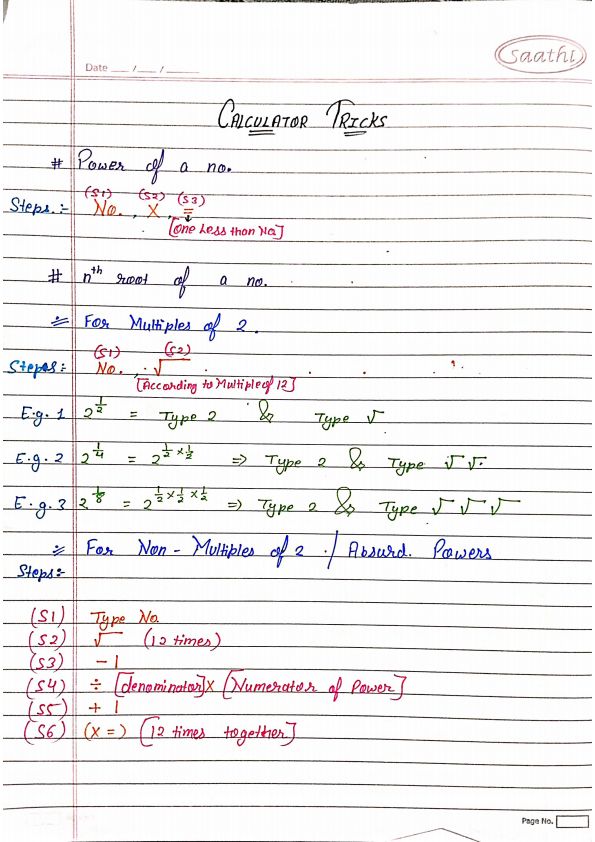 Saathi
Date __/__/____
CALCULATOR TRICKS
# Power of a no.
(S1) (S2) (S3)
Steps.:- No. , X , =
[One Less than No.]
# nth root of a no.
∺ For Multiples of 2.
(S1) (S2)
Steps:- No. , √
[According to Multiple of 12]
E.g. 1 2^(1/2) = Type 2 & Type √
E.g. 2 2^(1/4) = 2^(1/2 × 1/2) ⇒ Type 2 & Type √ √.
E.g. 3 2^(1/8) = 2^(1/2 × 1/2 × 1/2) ⇒ Type 2 & Type √ √ √
∺ For Non - Multiples of 2 / Absurd. Powers
Steps:-
(S1) Type No.
(S2) √ (12 times)
(S3) - 1
(S4) ÷ [denominator] X [Numerator of Power]
(S5) + 1
(S6) (X =) [12 times together]
Page No.